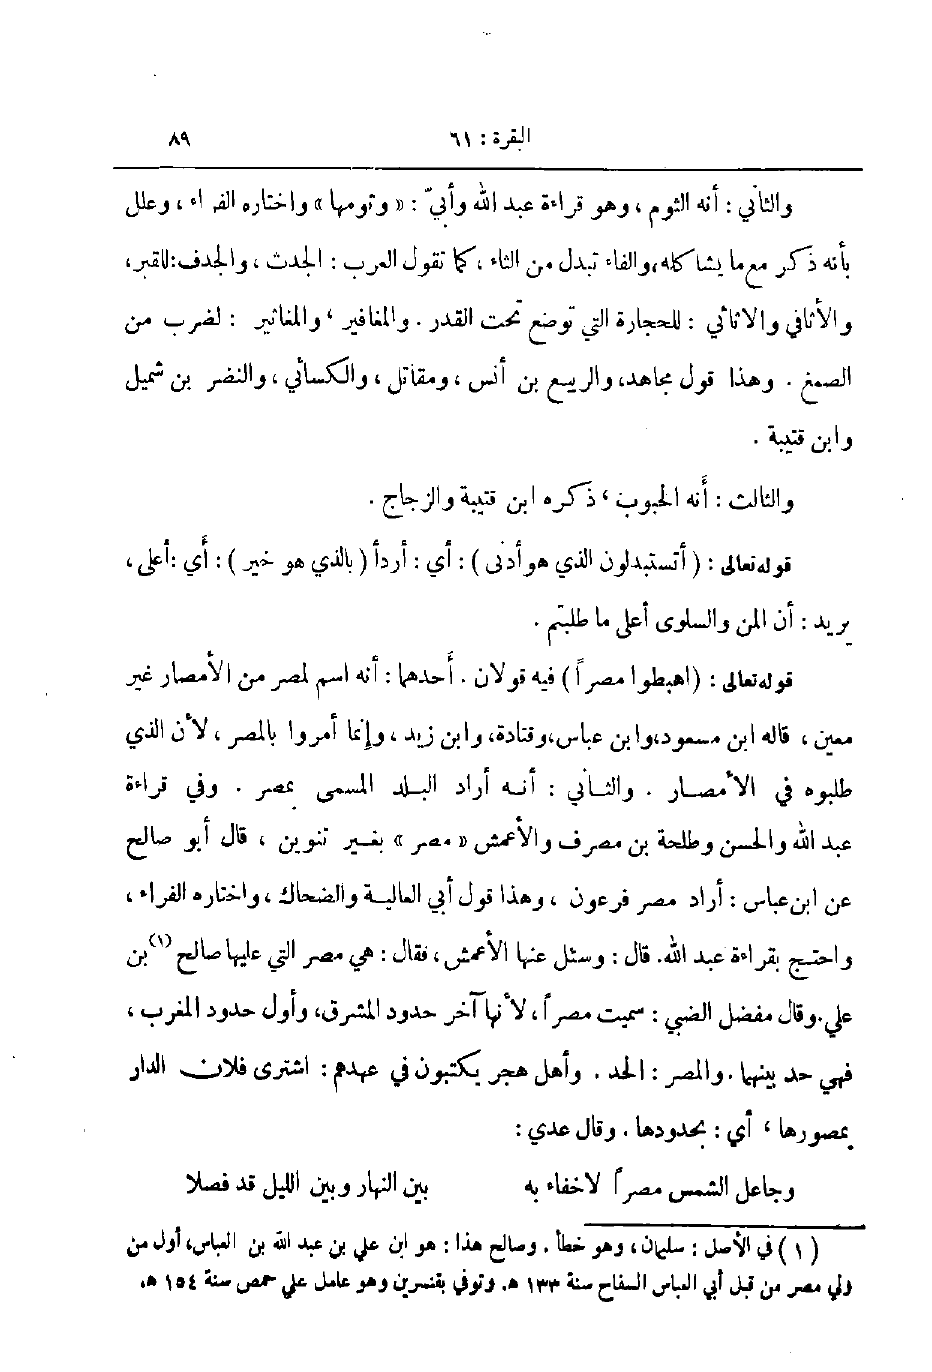 البقرة : ٦١ ٨٩
والثاني : أنه الثوم ، وهو قراءة عبد الله وأبيّ : « وثومها » واختاره الفراء ، وعلل
بأنه ذكر مع ما يشاكله، والفاء تبدل من الثاء ، كما تقول العرب : الجدث ، والجدف: للقبر،
والأثافي والاثاثي : للحجارة التي توضع تحت القدر . والمغافير ، والمغاثير : لضرب من
الصمغ . وهذا قول مجاهد، والربيع بن أنس ، ومقاتل ، والكسائي ، والنضر بن شميل
وابن قتيبة .
والثالث : أنه الحبوب ، ذكره ابن قتيبة والزجاج .
قوله تعالى : ( أتستبدلون الذي هو أدنى ) : أي : أردأ ( بالذي هو خير ) : أي : أعلى ،
يريد : أن المن والسلوى أعلى ما طلبتم .
قوله تعالى : ( اهبطوا مصراً ) فيه قولان . أحدهما : أنه اسم لمصر من الأمصار غير
معين ، قاله ابن مسعود، وابن عباس، وقتادة، وابن زيد ، وإنما أمروا بالمصر ، لأن الذي
طلبوه في الأمصار . والثاني : أنه أراد البلد المسمى بمصر . وفي قراءة
عبد الله والحسن وطلحة بن مصرف والأعمش « مصر » بغير تنوين ، قال أبو صالح
عن ابن عباس : أراد مصر فرعون ، وهذا قول أبي العالية والضحاك ، واختاره الفراء ،
واحتج بقراءة عبد الله. قال : وسئل عنها الأعمش ، فقال : هي مصر التي عليها صالح (١) بن
علي. وقال مفضل الضبي : سميت مصراً، لأنها آخر حدود المشرق، وأول حدود المغرب ،
فهي حد بينهما . والمصر : الحد . وأهل هجر يكتبون في عهدهم : اشترى فلان الدار
بمصورها ، أي : بحدودها . وقال عدي :
وجاعل الشمس مصراً لاخفاء به بين النهار وبين الليل قد فصلا
( ١ ) في الأصل : سليمان ، وهو خطأ . وصالح هذا : هو ابن علي بن عبد الله بن العباس، أول من
ولي مصر من قبل أبي العباس السفاح سنة ١٣٣ ه. وتوفي بقنسرين وهو عامل على حمص سنة ١٥٤ ه.